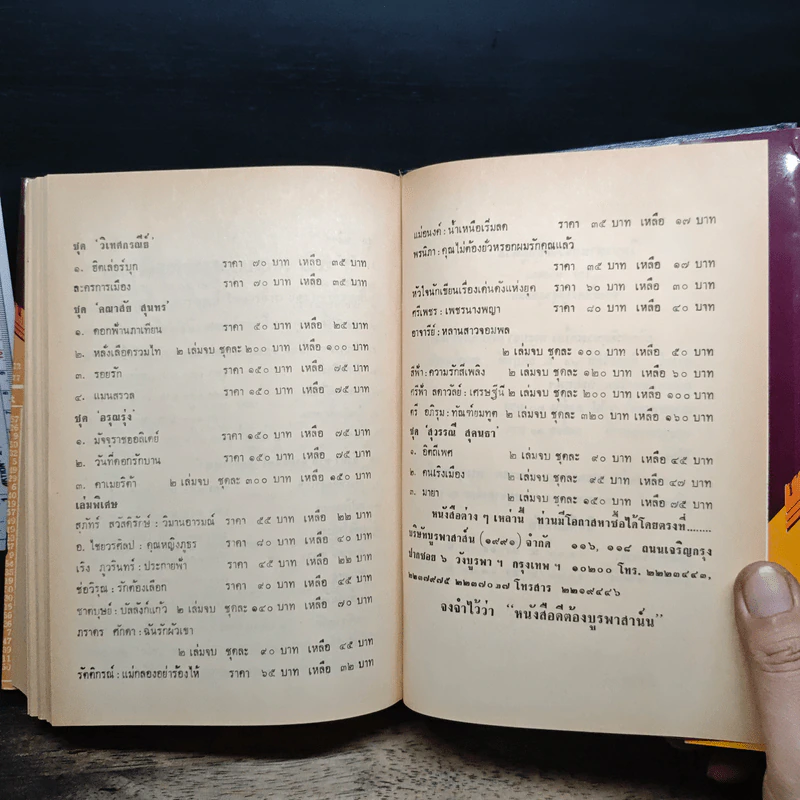 ชุด 'วิเทศกรณีย์'
๑. ฮิตเล่อร์บุก ราคา ๗๐ บาท เหลือ ๓๕ บาท
ละครการเมือง ราคา ๗๐ บาท เหลือ ๓๕ บาท
ชุด 'คณาสัย สุนทร'
๑. ดอกฟ้านภาเทียน ราคา ๕๐ บาท เหลือ ๒๕ บาท
๒. หลั่งเลือดรวมไท ๒ เล่มจบ ชุดละ ๒๐๐ บาท เหลือ ๑๐๐ บาท
๓. รอยรัก ราคา ๑๕๐ บาท เหลือ ๗๕ บาท
๔. แมนสรวล ราคา ๑๕๐ บาท เหลือ ๗๕ บาท
ชุด 'อรุณรุ่ง'
๑. มัจจุราชฮอลิเดย์ ราคา ๑๕๐ บาท เหลือ ๗๕ บาท
๒. วันที่ดอกรักบาน ราคา ๑๕๐ บาท เหลือ ๗๕ บาท
๓. คาเมอริต้า ๒ เล่มจบ ชุดละ ๓๐๐ บาท เหลือ ๑๕๐ บาท
เล่มพิเศษ
สุภัทร์ สวัสดิรักษ์ : วิมานอารมณ์ ราคา ๕๕ บาท เหลือ ๒๒ บาท
อ. ไชยวรศิลป : คุณหญิงภูธร ราคา ๘๐ บาท เหลือ ๔๐ บาท
เริง ภูวรินทร์ : ประกายฟ้า ราคา ๙๐ บาท เหลือ ๔๕ บาท
ช่อวิรุณ : รักต้องเลือก ราคา ๙๐ บาท เหลือ ๔๕ บาท
ชาตบุษย์ : บัลลังก์แก้ว ๒ เล่มจบ ชุดละ ๑๔๐ บาท เหลือ ๗๐ บาท
ภราดร ศักดา : ฉันรักผัวเขา
๒ เล่มจบ ชุดละ ๙๐ บาท เหลือ ๔๕ บาท
รัตติกรณ์ : แม่กลองอย่าร้องไห้ ราคา ๖๕ บาท เหลือ ๓๒ บาท
แม่อนงค์ : น้ำเหนือเริ่มลด ราคา ๓๕ บาท เหลือ ๑๗ บาท
พรนิภา : คุณไม่ต้องยั่วหรอกผมรักคุณแล้ว
ราคา ๓๕ บาท เหลือ ๑๗ บาท
หัวใจนักเขียนเรื่องเด่นดังแห่งยุค ราคา ๖๐ บาท เหลือ ๓๐ บาท
ศรีเพชร : เพชรนางพญา ราคา ๘๐ บาท เหลือ ๔๐ บาท
อาจารีย์ : หลานสาวจอมพล
๒ เล่มจบ ชุดละ ๑๐๐ บาท เหลือ ๕๐ บาท
สีฟ้า : ความรักสีเพลิง ๒ เล่มจบ ชุดละ ๑๒๐ บาท เหลือ ๖๐ บาท
ศรีฟ้า ลดาวัลย์ : เศรษฐีนี ๒ เล่มจบ ชุดละ ๒๐๐ บาท เหลือ ๑๐๐ บาท
ตรี อภิรุม : ทัณฑ์ยมทูต ๒ เล่มจบ ชุดละ ๓๒๐ บาท เหลือ ๑๖๐ บาท
ชุด 'สุวรรณี สุคนธา'
๑. อิตถีเพศ ๒ เล่มจบ ชุดละ ๙๐ บาท เหลือ ๔๕ บาท
๒. คนเริงเมือง ๒ เล่มจบ ชุดละ ๙๕ บาท เหลือ ๔๗ บาท
๓. มายา ๒ เล่มจบ ชุดละ ๑๕๐ บาท เหลือ ๗๕ บาท
หนังสือต่าง ๆ เหล่านี้ ท่านมีโอกาสหาซื้อได้โดยตรงที่........
บริษัทบูรพาสาส์น (๑๙๙๑) จำกัด ๑๑๖, ๑๑๘ ถนนเจริญกรุง
ปากซอย ๖ วังบูรพา ฯ กรุงเทพ ฯ ๑๐๒๐๐ โทร. ๒๒๒๓๔๔๓,
๒๒๑๗๙๗๕ ๒๒๓๗๐๑๗ โทรสาร ๒๒๑๙๔๔๖
จงจำไว้ว่า "หนังสือดีต้องบูรพาสาส์น"